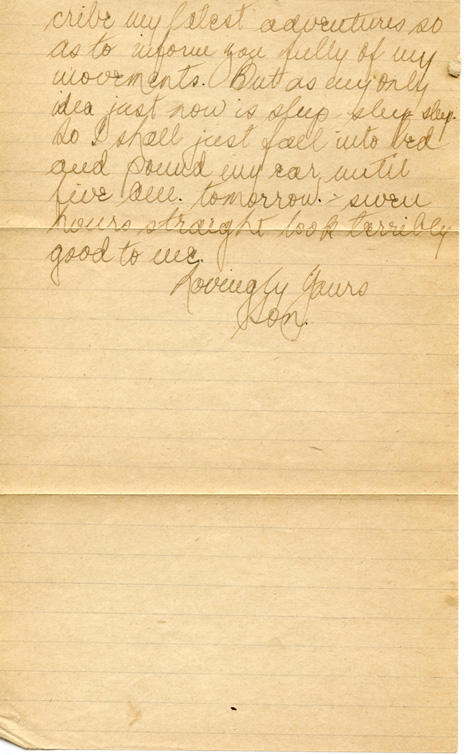 cribe my latest adventures so
as to inform you fully of my
movements. But as my only
idea just now is sleep - sleep sleep.
So I shall just fall into bed
and pound my ear until
five A.M. tomorrow. - seven
hours straight look terribly
good to me.
Lovingly Yours
Son.